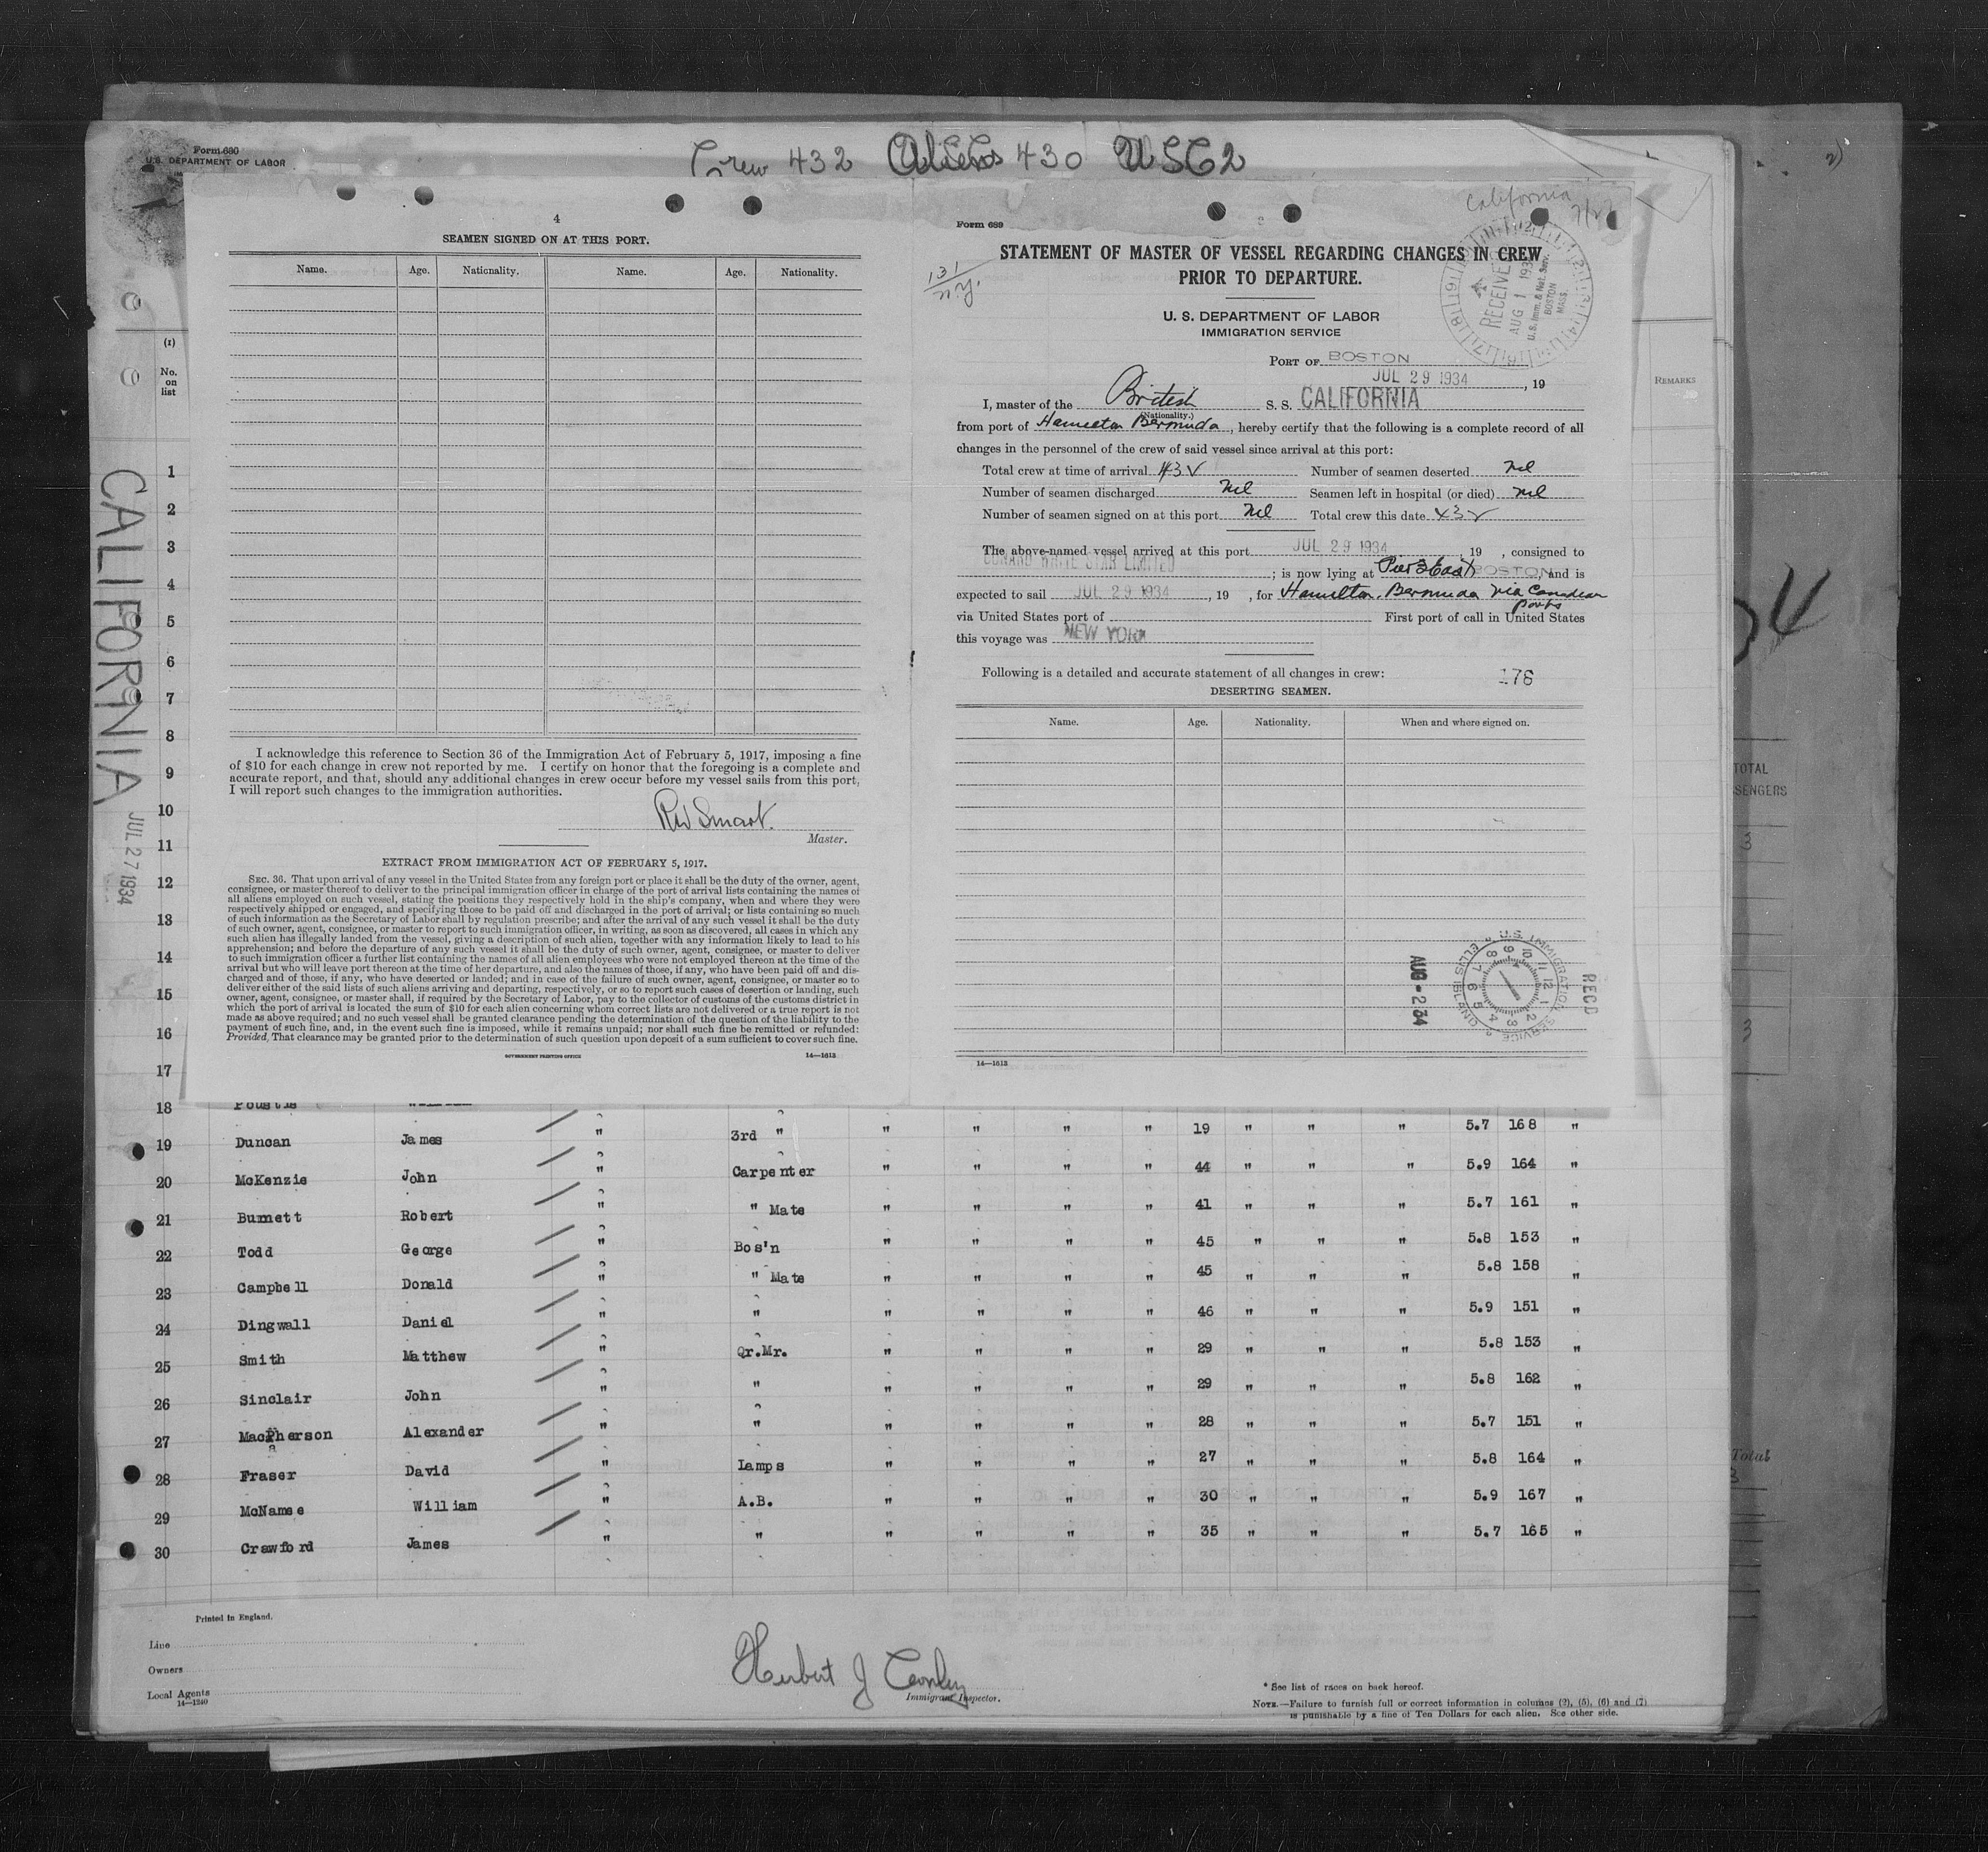 Form 680
U. S. DEPARTMENT OF LABOR
Crew 432 Aliens 430 USC2
California
CALIFORNIA
JUL 27 1934
(1)
No.
on
list
1
2
3
4
5
6
7
8
9
10
11
12
13
14
15
16
17
4
SEAMEN SIGNED ON AT THIS PORT.
Name. Age. Nationality. Name. Age. Nationality.
I acknowledge this reference to Section 36 of the Immigration Act of February 5, 1917, imposing a fine
of $10 for each change in crew not reported by me. I certify on honor that the foregoing is a complete and
accurate report, and that, should any additional changes in crew occur before my vessel sails from this port,
I will report such changes to the immigration authorities.
RW Smart.
Master.
EXTRACT FROM IMMIGRATION ACT OF FEBRUARY 5, 1917.
SEC. 36. That upon arrival of any vessel in the United States from any foreign port or place it shall be the duty of the owner, agent,
consignee, or master thereof to deliver to the principal immigration officer in charge of the port of arrival lists containing the names of
all aliens employed on such vessel, stating the positions they respectively hold in the ship's company, when and where they were
respectively shipped or engaged, and specifying those to be paid off and discharged in the port of arrival; or lists containing so much
of such information as the Secretary of Labor shall by regulation prescribe; and after the arrival of any such vessel it shall be the duty
of such owner, agent, consignee, or master to report to such immigration officer, in writing, as soon as discovered, all cases in which any
such alien has illegally landed from the vessel, giving a description of such alien, together with any information likely to lead to his
apprehension; and before the departure of any such vessel it shall be the duty of such owner, agent, consignee, or master to deliver
to such immigration officer a further list containing the names of all alien employees who were not employed thereon at the time of the
arrival but who will leave port thereon at the time of her departure, and also the names of those, if any, who have been paid off and dis-
charged and of those, if any, who have deserted or landed; and in case of the failure of such owner, agent, consignee, or master so to
deliver either of the said lists of such aliens arriving and departing, respectively, or so to report such cases of desertion or landing, such
owner, agent, consignee, or master shall, if required by the Secretary of Labor, pay to the collector of customs of the customs district in
which the port of arrival is located the sum of $10 for each alien concerning whom correct lists are not delivered or a true report is not
made as above required; and no such vessel shall be granted clearance pending the determination of the question of the liability to the
payment of such fine, and, in the event such fine is imposed, while it remains unpaid; nor shall such fine be remitted or refunded:
Provided, That clearance may be granted prior to the determination of such question upon deposit of a sum sufficient to cover such fine.
GOVERNMENT PRINTING OFFICE 14—1613
Form 689
131
n.y.
STATEMENT OF MASTER OF VESSEL REGARDING CHANGES IN CREW
PRIOR TO DEPARTURE.
RECEIVED
AUG 1 1934
U.S. Imm. & Nat. Serv.
BOSTON
MASS.
U. S. DEPARTMENT OF LABOR
IMMIGRATION SERVICE
PORT OF BOSTON
JUL 29 1934, 19
I, master of the British S. S. CALIFORNIA
(Nationality.)
from port of Hamilton Bermuda, hereby certify that the following is a complete record of all
changes in the personnel of the crew of said vessel since arrival at this port:
Total crew at time of arrival 432 Number of seamen deserted nil
Number of seamen discharged nil Seamen left in hospital (or died) nil
Number of seamen signed on at this port nil Total crew this date 432
The above-named vessel arrived at this port JUL 29 1934, 19 , consigned to
CUNARD WHITE STAR LIMITED ; is now lying at Pier 3 East BOSTON, and is
expected to sail JUL 29 1934, 19 , for Hamilton, Bermuda via Canadian
ports
via United States port of First port of call in United States
this voyage was NEW YORK
Following is a detailed and accurate statement of all changes in crew: 176
DESERTING SEAMEN.
Name. Age. Nationality. When and where signed on.
AUG -2 34
U.S. IMMIGRATION SERVICE ELLIS ISLAND
REC'D
14—1613
REMARKS
TOTAL
SENGERS
3
3
Total
3
18
19 Duncan James " 3rd " " " " " 19 " " " 5.7 168 "
20 McKenzie John " Carpenter " " " " 44 " " " 5.9 164 "
21 Burnett Robert " " Mate " " " " 41 " " " 5.7 161 "
22 Todd George " Bos'n " " " " 45 " " " 5.8 153 "
23 Campbell Donald " " Mate " " " " 45 " " " 5.8 158 "
24 Dingwall Daniel " " " " " " 46 " " " 5.9 151 "
25 Smith Matthew " Qr.Mr. " " " " 29 " " " 5.8 153 "
26 Sinclair John " " " " " " 29 " " " 5.8 162 "
27 MacPherson Alexander " " " " " " 28 " " " 5.7 151 "
28 Fraser David " Lamps " " " " 27 " " " 5.8 164 "
29 McNamee William " A.B. " " " " 30 " " " 5.9 167 "
30 Crawford James " " " " " " 35 " " " 5.7 165 "
Printed in England.
Line
Owners
Local Agents
14—1240
Herbert J
Immigrant Inspector.
* See list of races on back hereof.
NOTE.—Failure to furnish full or correct information in columns (2), (5), (6) and (7)
is punishable by a fine of Ten Dollars for each alien. See other side.